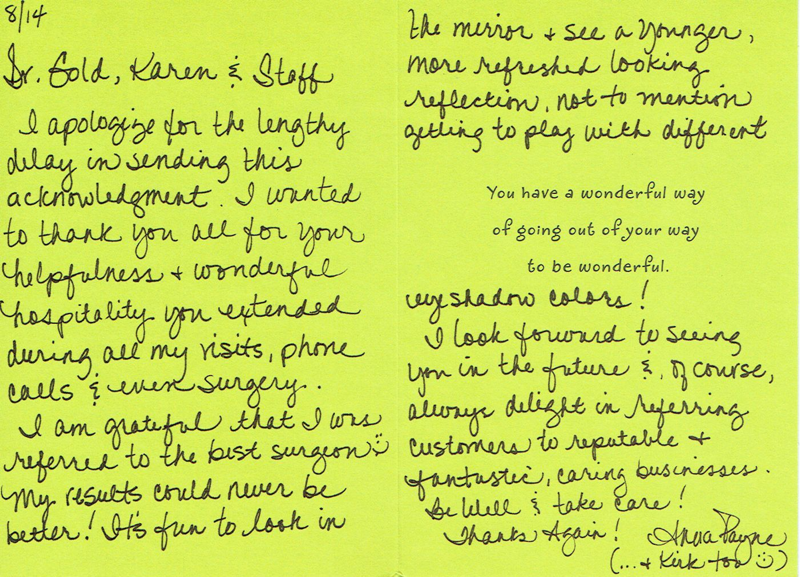 8/14
Dr. Gold, Karen & Staff
I apologize for the lengthy
delay in sending this
acknowledgment. I wanted
to thank you all for your
helpfulness + wonderful
hospitality you extended
during all my visits, phone
calls & even surgery..
I am grateful that I was
referred to the best surgeon :)
My results could never be
better! It's fun to look in
the mirror + see a younger,
more refreshed looking
reflection, not to mention
getting to play with different
You have a wonderful way
of going out of your way
to be wonderful.
eyeshadow colors!
I look forward to seeing
you in the future &, of course,
always delight in referring
customers to reputable +
fantastic, caring businesses.
Be Well & take care!
Thanks Again! Anna Payne
(...+ Kirk too :))